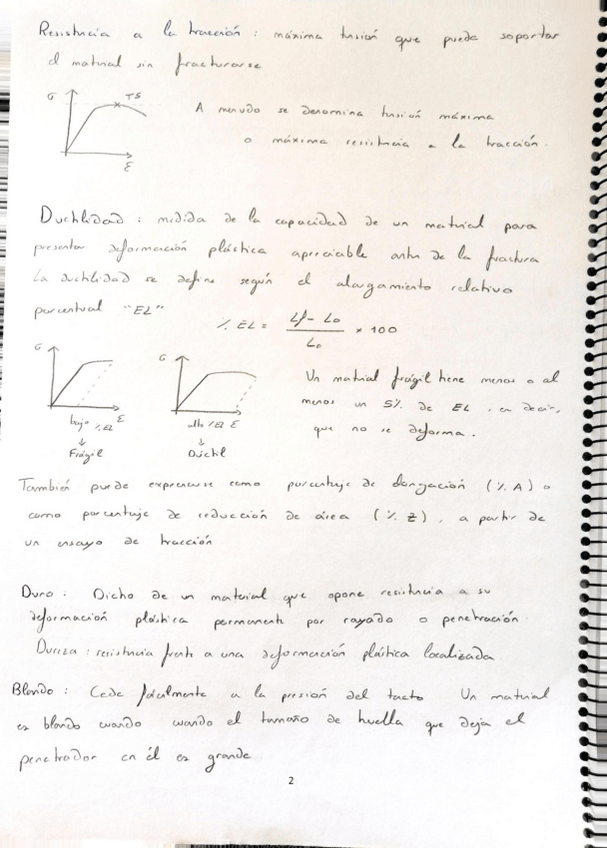 Resistencia a la tracción : máxima tensión que puede soportar
el material sin fracturarse
σ
TS
ε
A menudo se denomina tensión máxima
o máxima resistencia a la tracción.
Ductilidad : medida de la capacidad de un material para
presentar deformación plástica apreciable antes de la fractura
La ductilidad se define según el alargamiento relativo
porcentual "EL"
% EL = (Lf - L₀) / L₀ × 100
σ
ε
bajo % EL
↓
Frágil
σ
ε
alto % EL
↓
Dúctil
Un material frágil tiene menos o al
menos un 5% de EL, es decir,
que no se deforma.
También puede expresarse como porcentaje de elongación (% A) o
como porcentaje de reducción de área (% Z), a partir de
un ensayo de tracción
Duro : Dicho de un material que opone resistencia a su
deformación plástica permanente por rayado o penetración.
Dureza : resistencia frente a una deformación plástica localizada
Blando : Cede fácilmente a la presión del tacto Un material
es blando cuando cuando el tamaño de huella que deja el
penetrador en él es grande.
2